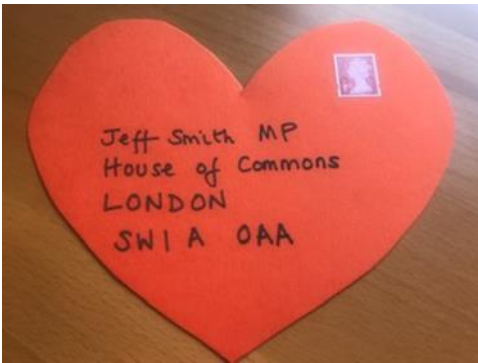 Jeff Smith MP
House of Commons
LONDON
SW1A 0AA